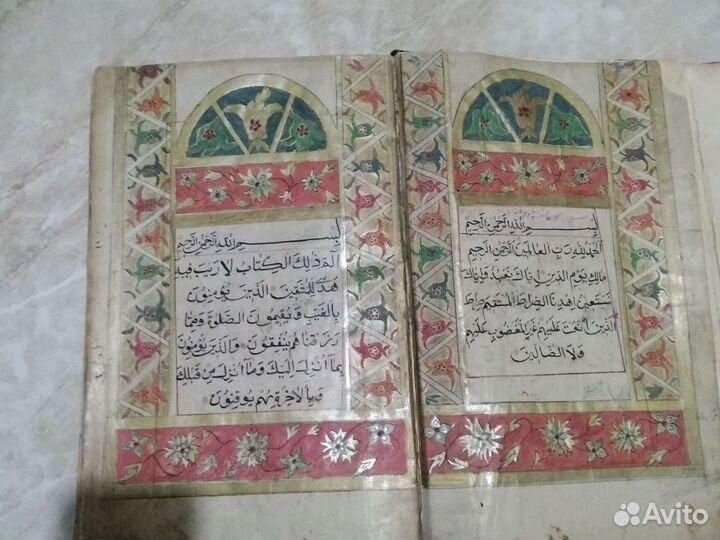 بسم الله الرحمن الرحيم
الحمد لله رب العالمين الرحمن الرحيم
مالك يوم الدين اياك نعبد واياك
نستعين اهدنا الصراط المستقيم صراط
الذين انعمت عليهم غير المغضوب عليهم
ولا الضالين
بسم الله الرحمن الرحيم
الم ذلك الكتاب لا ريب فيه
هدى للمتقين الذين يومنون
بالغيب ويقيمون الصلوة ومما
رزقناهم ينفقون والذين يومنون
بما انزل اليك وما انزل من قبلك
وبالاخرة هم يوقنون
Avito